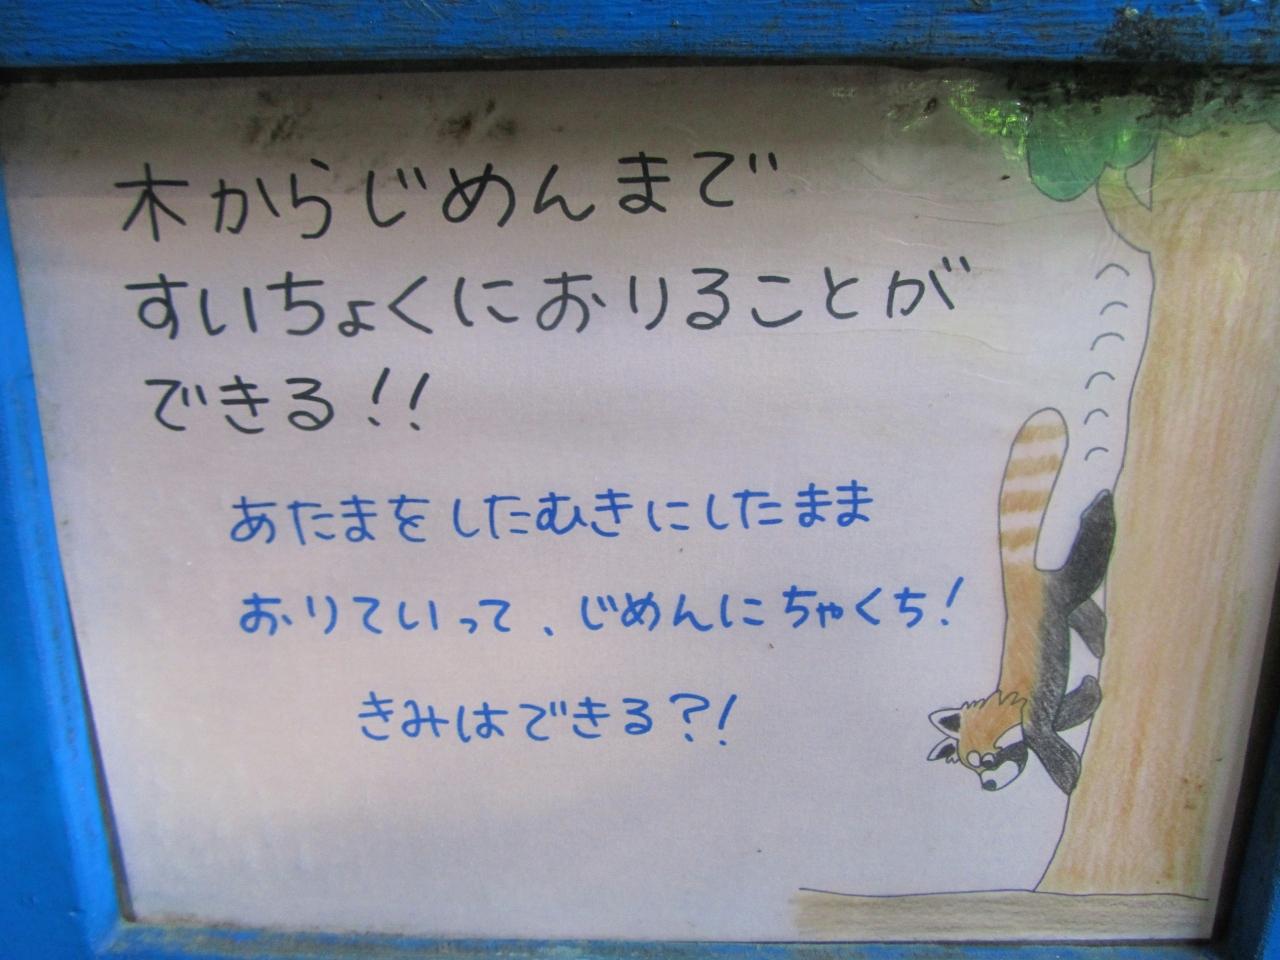 木からじめんまで
すいちょくにおりることが
できる!!
あたまをしたむきにしたまま
おりていって、じめんにちゃくち!
きみはできる?!